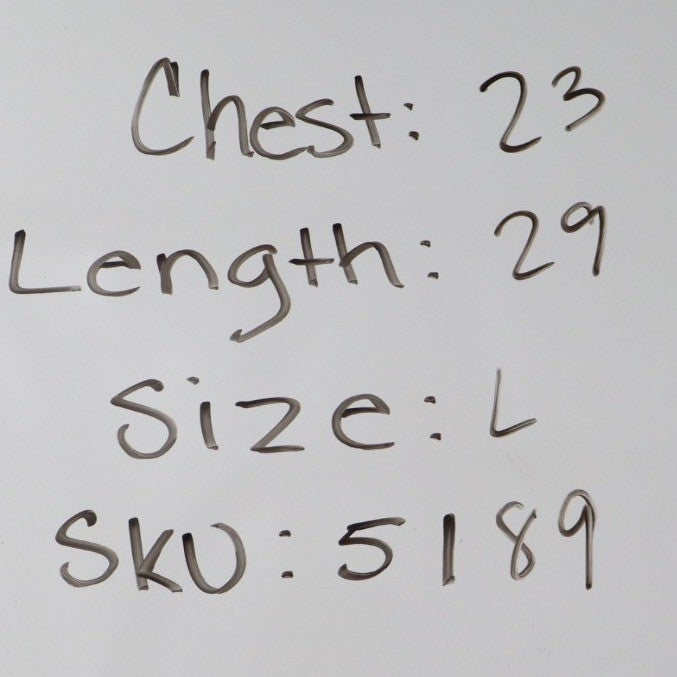 Chest: 23
Length: 29
Size: L
SKU: 5189